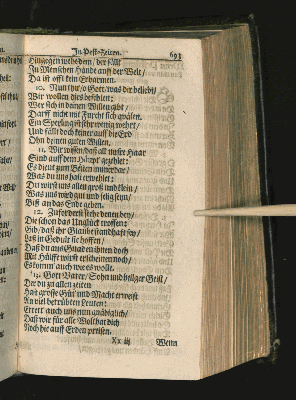 In Pest-Zeiten. 693
Hingegen wehe dem/ der fällt
Zu Menschen Hände auff der Welt/
Da ist offt kein Erbarmen.
10. Nun thu/ o Gott/ was dir beliebt/
Wir wollen dirs befehlen;
Wer sich in deinen Willen giebt/
Darff nicht mit Furcht sich quälen.
Ein Sperling ist sehr wenig wehrt/
Und fällt doch keiner auff die Erd
Ohn deinen guten Willen.
11. Wir wissen/ daß all unser Haar
Sind auff dem Häupt gezehlet:
Es dient zum Besten immerdar/
Was du uns hast erwehlet:
Du wirst uns allen groß und klein/
Was uns wird gut und selig seyn/
Biß an das Ende geben.
12. Zuförderst stehe denen bey/
Die schon das Unglück troffen:
Gib/ daß ihr Glaube standhafft sey/
Laß in Gedult sie hoffen/
Daß du aus Gnaden ihnen doch
Mit Hülffe wirst erscheinen noch/
Es komm auch wie es wolle.
13. Gott Vater/ Sohn und heilger Geist/
Der du zu allen zeiten
Hast grosse Güt und Macht erweist
An viel betrübten Leuten:
Errett auch uns nun gnädiglich/
Daß wir für alle Wolthat dich
Noch hie auff Erden preisen.
Xx iij Wenn